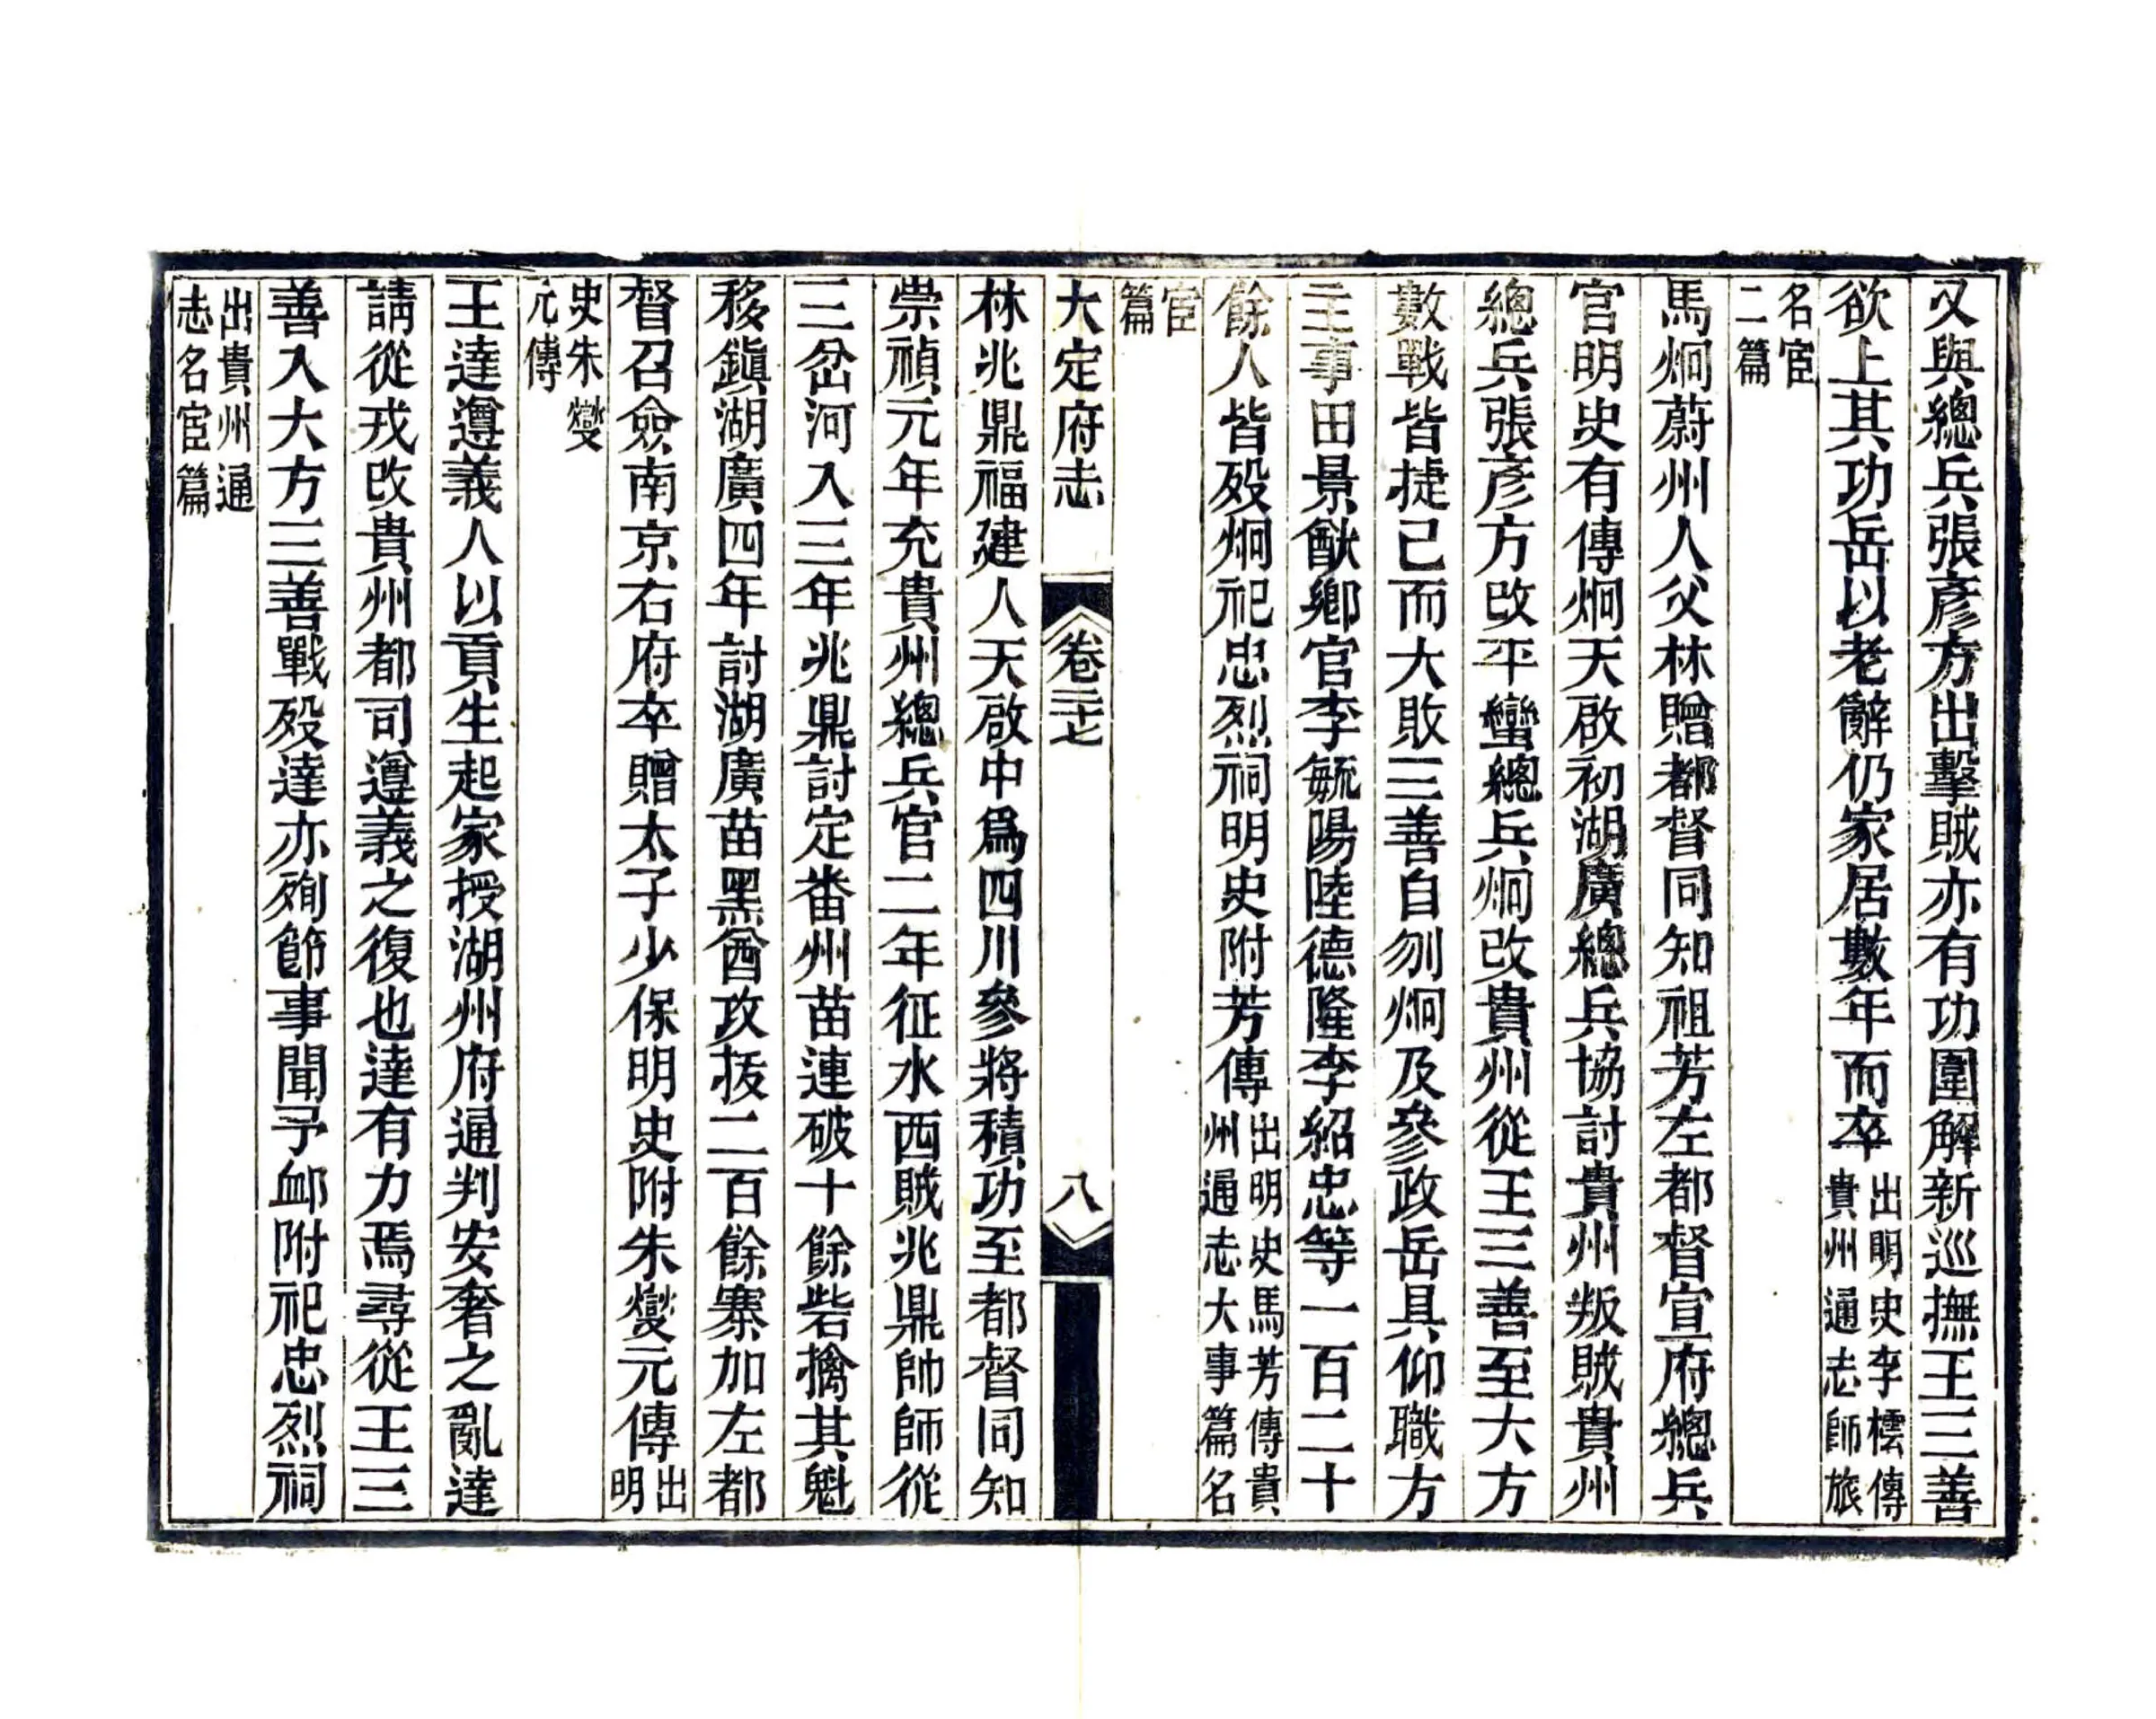 又與總兵張彥方出擊賊亦有功圍解新巡撫王三善
欲上其功岳以老辭仍家居數年而卒出明史李橒傳貴州通志師旅
名宦二篇
馬炯蔚州人父林贈都督同知祖芳左都督宣府總兵
官明史有傳炯天啟初湖廣總兵協討貴州叛賊貴州
總兵張彥方改平蠻總兵炯改貴州從王三善至大方
數戰皆捷已而大敗三善自刎炯及參政岳具仰職方
主事田景猷鄉官李毓陽陸德隆李紹忠等一百二十
餘人皆歿炯祀忠烈祠明史附芳傳出明史馬芳傳貴州通志大事篇名
宦篇
大定府志 卷二十七 八
林兆鼎福建人天啟中爲四川參將積功至都督同知
崇禎元年充貴州總兵官二年征水西賊兆鼎帥師從
三岔河入三年兆鼎討定番州苗連破十餘砦擒其魁
移鎮湖廣四年討湖廣苗黑酋攻拔二百餘寨加左都
督召僉南京右府卒贈太子少保明史附朱燮元傳出明
史朱燮元傳
王達遵義人以貢生起家授湖州府通判安奢之亂達
請從戎改貴州都司遵義之復也達有力焉尋從王三
善入大方三善戰歿達亦殉節事聞予卹附祀忠烈祠
出貴州通志名宦篇